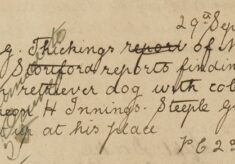 29th Sep
g. Thickings report of N
Stortford reports findin
retriever dog with col
H Innings. Steeple
at his place
P C 2